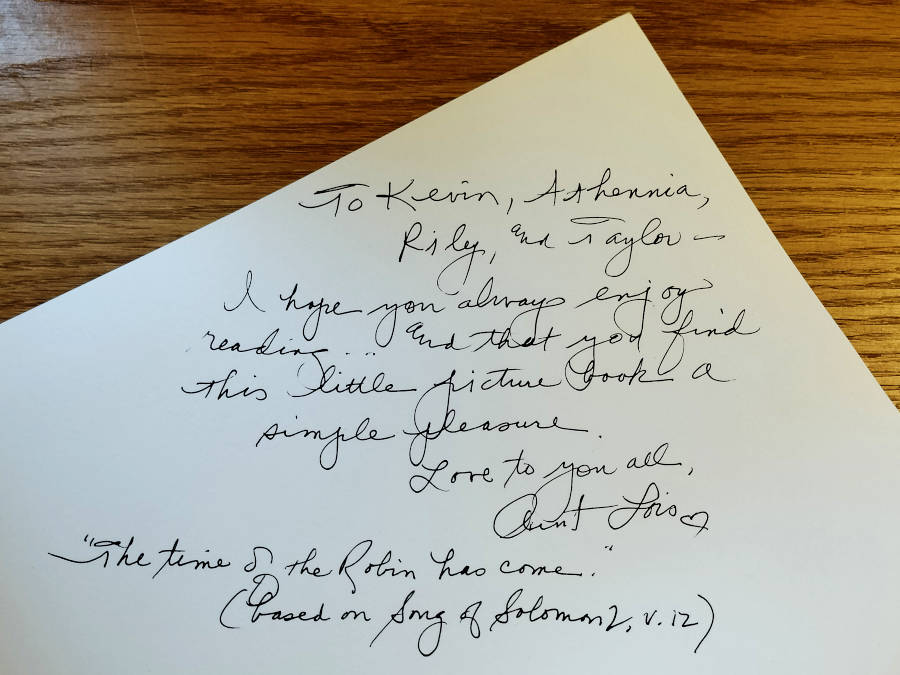 To Kevin, Athennia,
Rily, and Taylor —
I hope you always enjoy
reading... And that you find
this little picture book a
simple pleasure.
Love to you all,
Aunt Lois ♡
"The time of the Robin has come."
(based on Song of Solomon 2, v. 12)